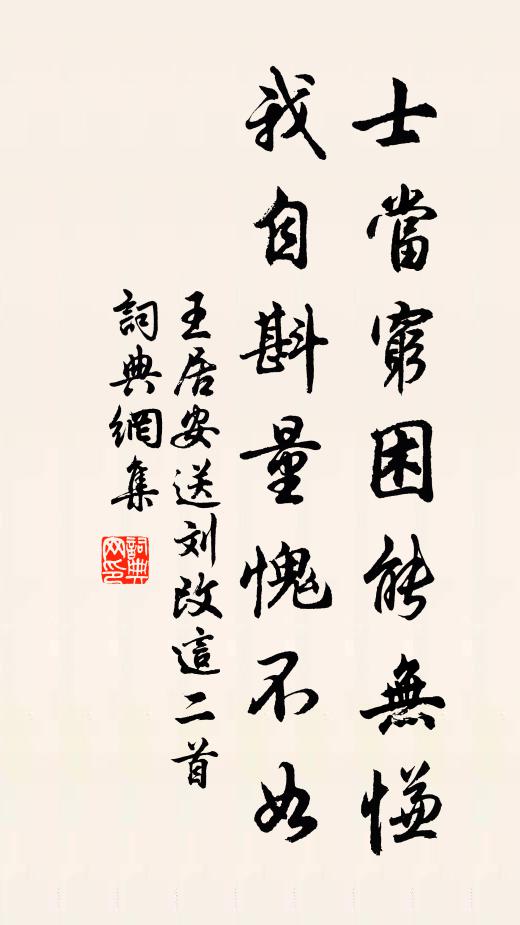 士當窮困能無慊
我自斟量愧不如
王居安送刘改這二首
詞典網集
詞典网印